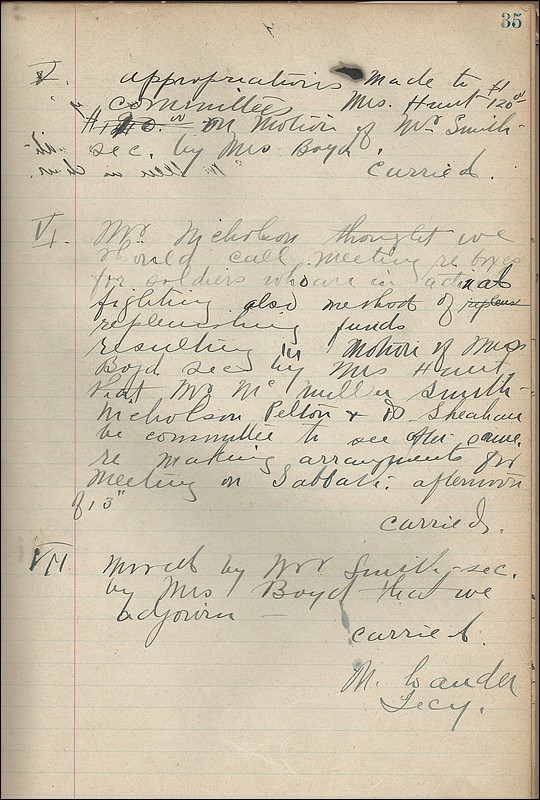 35
V. appropriations made to
committee Mrs. Hunt $120.00
on Motion of Mrs Smith-
sec. by Mrs Boyd.
carried.
VI. Mrs. Nicholson thought we
should call meeting re boxes
for soldiers who are in actual
fighting also method of
replenishing funds
resulting in Motion of Mrs
Boyd sec by Mrs Hunt,
that Mrs McMillen Smith-
Nicholson Pelton & Sheahan
be committee to see after same.
re making arrangements for
Meeting on Sabbath. afternoon
of 13"
carried.
VII Moved by Mrs Smith-sec.
by Mrs Boyd that we
adjourn -
carried.
M.
Secy.